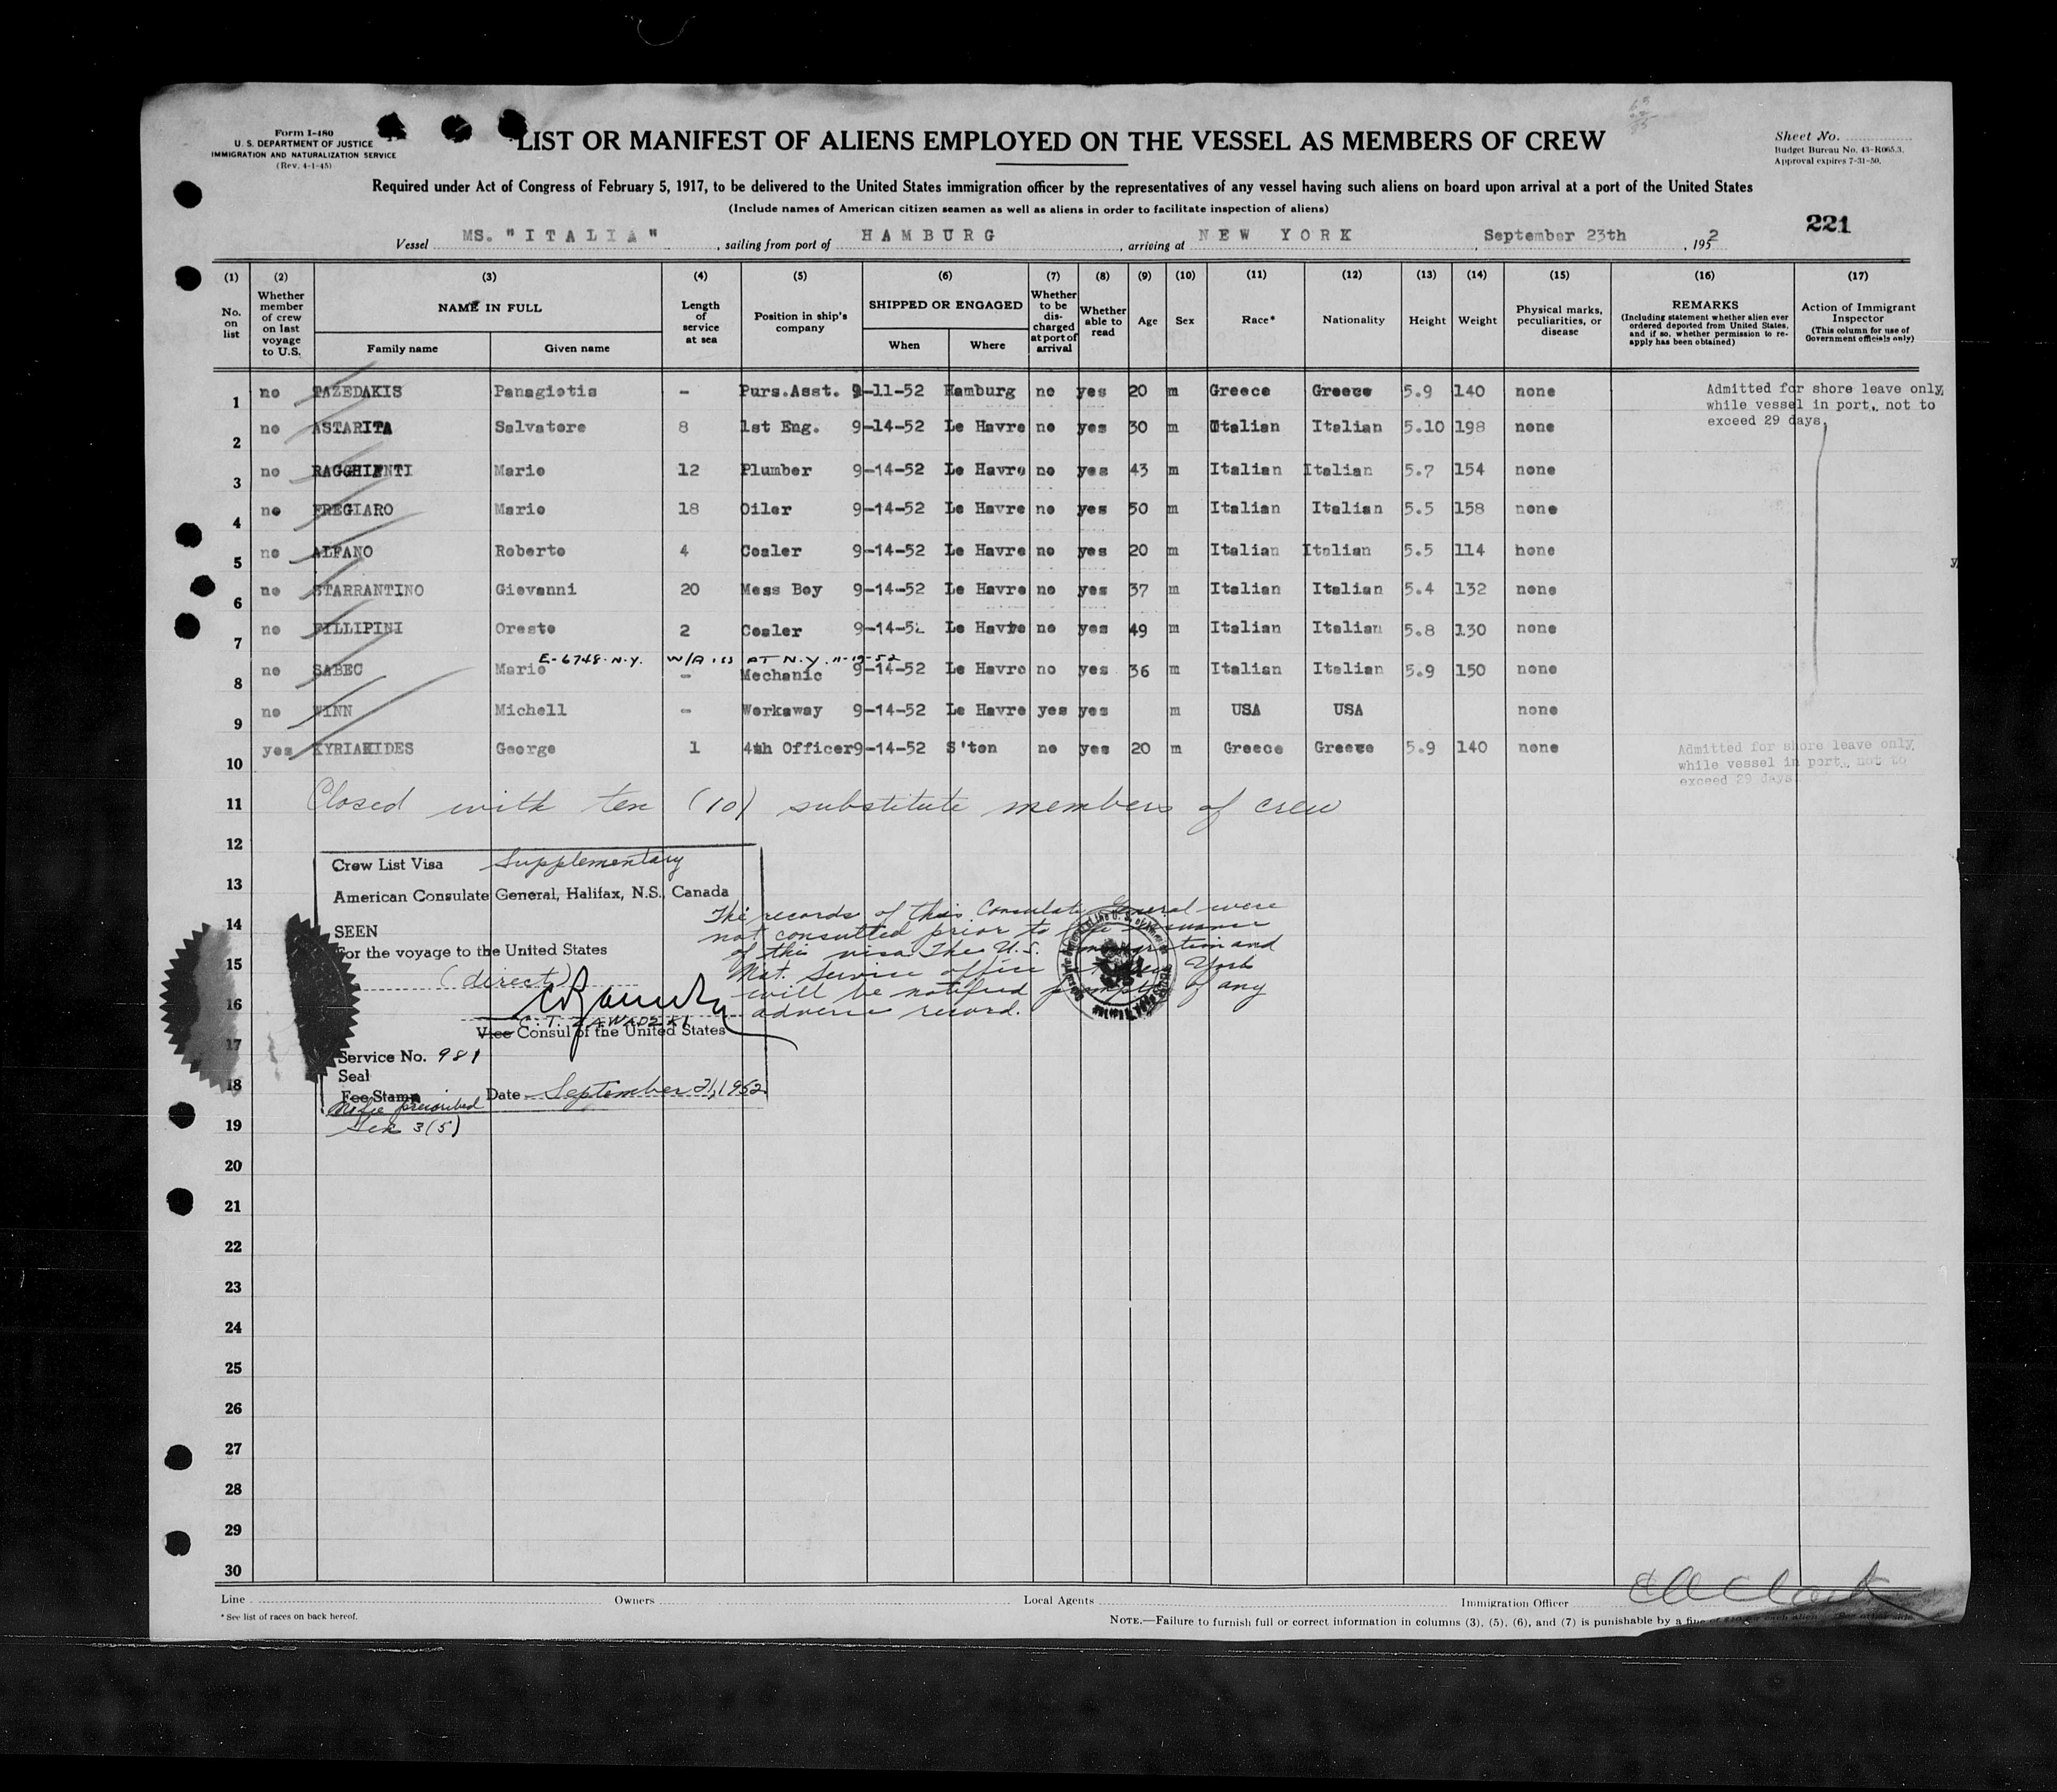 Form I-480
U. S. DEPARTMENT OF JUSTICE
IMMIGRATION AND NATURALIZATION SERVICE
(Rev. 4-1-45)
LIST OR MANIFEST OF ALIENS EMPLOYED ON THE VESSEL AS MEMBERS OF CREW
Sheet No.
Budget Bureau No. 43-R065.3.
Approval expires 7-31-50.
Required under Act of Congress of February 5, 1917, to be delivered to the United States immigration officer by the representatives of any vessel having such aliens on board upon arrival at a port of the United States
(Include names of American citizen seamen as well as aliens in order to facilitate inspection of aliens)
221
Vessel MS. "ITALIA" , sailing from port of HAMBURG , arriving at NEW YORK , September 23th , 1952
(1) (2) (3) (4) (5) (6) (7) (8) (9) (10) (11) (12) (13) (14) (15) (16) (17)
No. on list
Whether member of crew on last voyage to U.S.
NAME IN FULL
Family name
Given name
Length of service at sea
Position in ship's company
SHIPPED OR ENGAGED
When
Where
Whether to be discharged at port of arrival
Whether able to read
Age
Sex
Race*
Nationality
Height
Weight
Physical marks, peculiarities, or disease
REMARKS
(Including statement whether alien ever ordered deported from United States, and if so, whether permission to reapply has been obtained)
Action of Immigrant Inspector
(This column for use of Government officials only)
1 no PAZEDAKIS Panagiotis - Purs.Asst. 9-11-52 Hamburg no yes 20 m Greece Greece 5.9 140 none
Admitted for shore leave only,
while vessel in port, not to
exceed 29 days.
2 no ASTARITA Salvatore 8 1st Eng. 9-14-52 Le Havre no yes 30 m Italian Italian 5.10 198 none
3 no RAGGHIENTI Mario 12 Plumber 9-14-52 Le Havre no yes 43 m Italian Italian 5.7 154 none
4 no FREGIARO Mario 18 Oiler 9-14-52 Le Havre no yes 50 m Italian Italian 5.5 158 none
5 no ALFANO Roberto 4 Coaler 9-14-52 Le Havre no yes 20 m Italian Italian 5.5 114 hone
6 no STARRANTINO Giovanni 20 Mess Boy 9-14-52 Le Havre no yes 37 m Italian Italian 5.4 132 none
7 no FILLIPINI Oreste 2 Coaler 9-14-52 Le Havre no yes 49 m Italian Italian 5.8 130 none
E-6748-N.Y. W/A AT N.Y.
8 no SABEC Mario - Mechanic 9-14-52 Le Havre no yes 36 m Italian Italian 5.9 150 none
9 no WINN Michell - Workaway 9-14-52 Le Havre yes yes m USA USA none
10 yes KYRIAKIDES George 1 4th Officer 9-14-52 S'ton no yes 20 m Greece Greece 5.9 140 none
Admitted for shore leave only,
while vessel in port, not to
exceed 29 days.
11 Closed with ten (10) substitute members of crew
12
Crew List Visa Supplementary
13
American Consulate General, Halifax, N.S., Canada
14
SEEN
For the voyage to the United States
15
(direct)
16
C. T. ZAWADZKI
Vice Consul of the United States
17
Service No. 981
Seal
18
Fee Stamp Date September 21, 1952
No fee prescribed
19
The records of this Consulate General were
not consulted prior to the issuance
of this visa. The U.S. Immigration and
Nat. Service office at New York
will be notified promptly of any
adverse record.
20
21
22
23
24
25
26
27
28
29
30
Line
Owners
Local Agents
Immigration Officer
*See list of races on back hereof.
NOTE.—Failure to furnish full or correct information in columns (3), (5), (6), and (7) is punishable by a fine